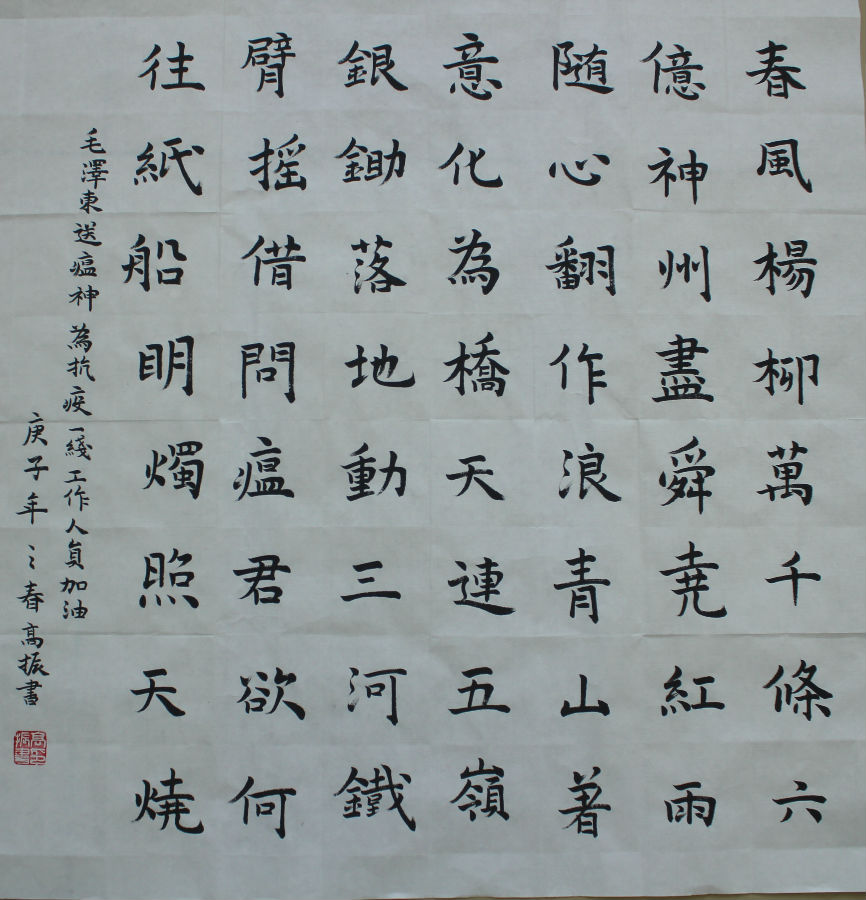 春風楊柳萬千條六
億神州盡舜尭紅雨
随心翻作浪青山著
意化為橋天連五嶺
銀鋤落地動三河鐵
臂摇借問瘟君欲何
往紙船明燭照天燒
毛澤東送瘟神為抗疫一綫工作人員加油
庚子年之春高振書